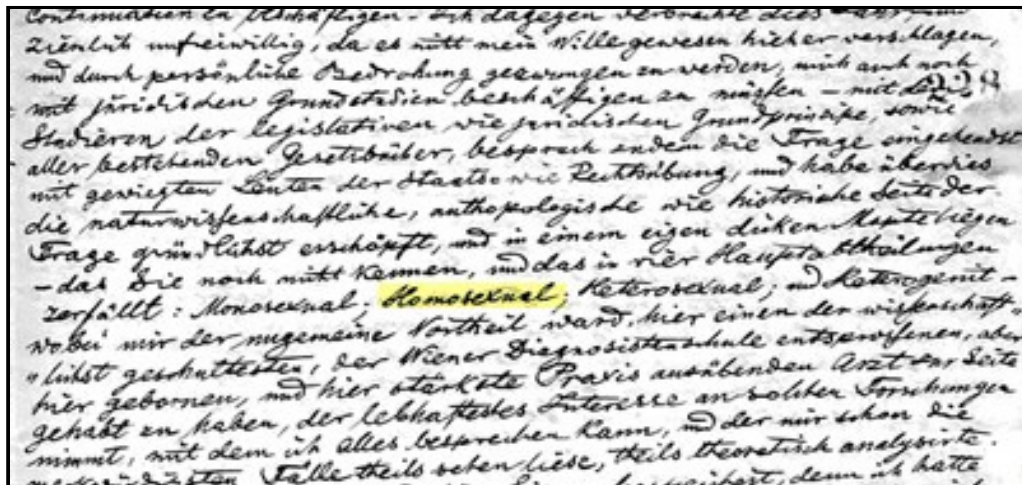 Continuation zu beschäftigen – Ich dagegen verbrachte dies Jahr, und
ziemlich unfreiwillig, da es nitt mein Wille gewesen hieher verschlagen,
und durch persönliche Bedrohung gezwungen zu werden, mich auch noch
mit juridischen Grundstudien beschäftigen zu müssen – mit dem
Studieren der legislativen wie juridischen Grundprincipe, sowie
aller bestehenden Gesetzbücher, besprach zudem die Frage eingehendst
mit gewiegten Leuten der Staats wie Rechtsübung, und habe überdies
die naturwissenschaftliche, anthopologische wie historische Seite der
Frage gründlichst erschöpft, und in einem eigen dicken Mspte liegen
– das Sie noch nitt kennen, und das in vier Hauptabtheilungen
zerfällt: Monosexual; Homosexual; Heterosexual; und Heterogenit –
wobei mir der ungemeine Vortheil ward, hier einen der wissenschaft-
lichst geschultesten, der Wiener Diagnosistenschule entsprossenen, aber
hier gebornen, und hier stärkste Praxis ausübenden Arzt zur Seite
gehabt zu haben, der lebhaftestes Interesse an solchen Forschungen
nimmt, mit dem ich Alles besprechen kann, und der mir schon die
Fälle theils sehen liese, theils theoretisch analysirte.
denn ich hatte